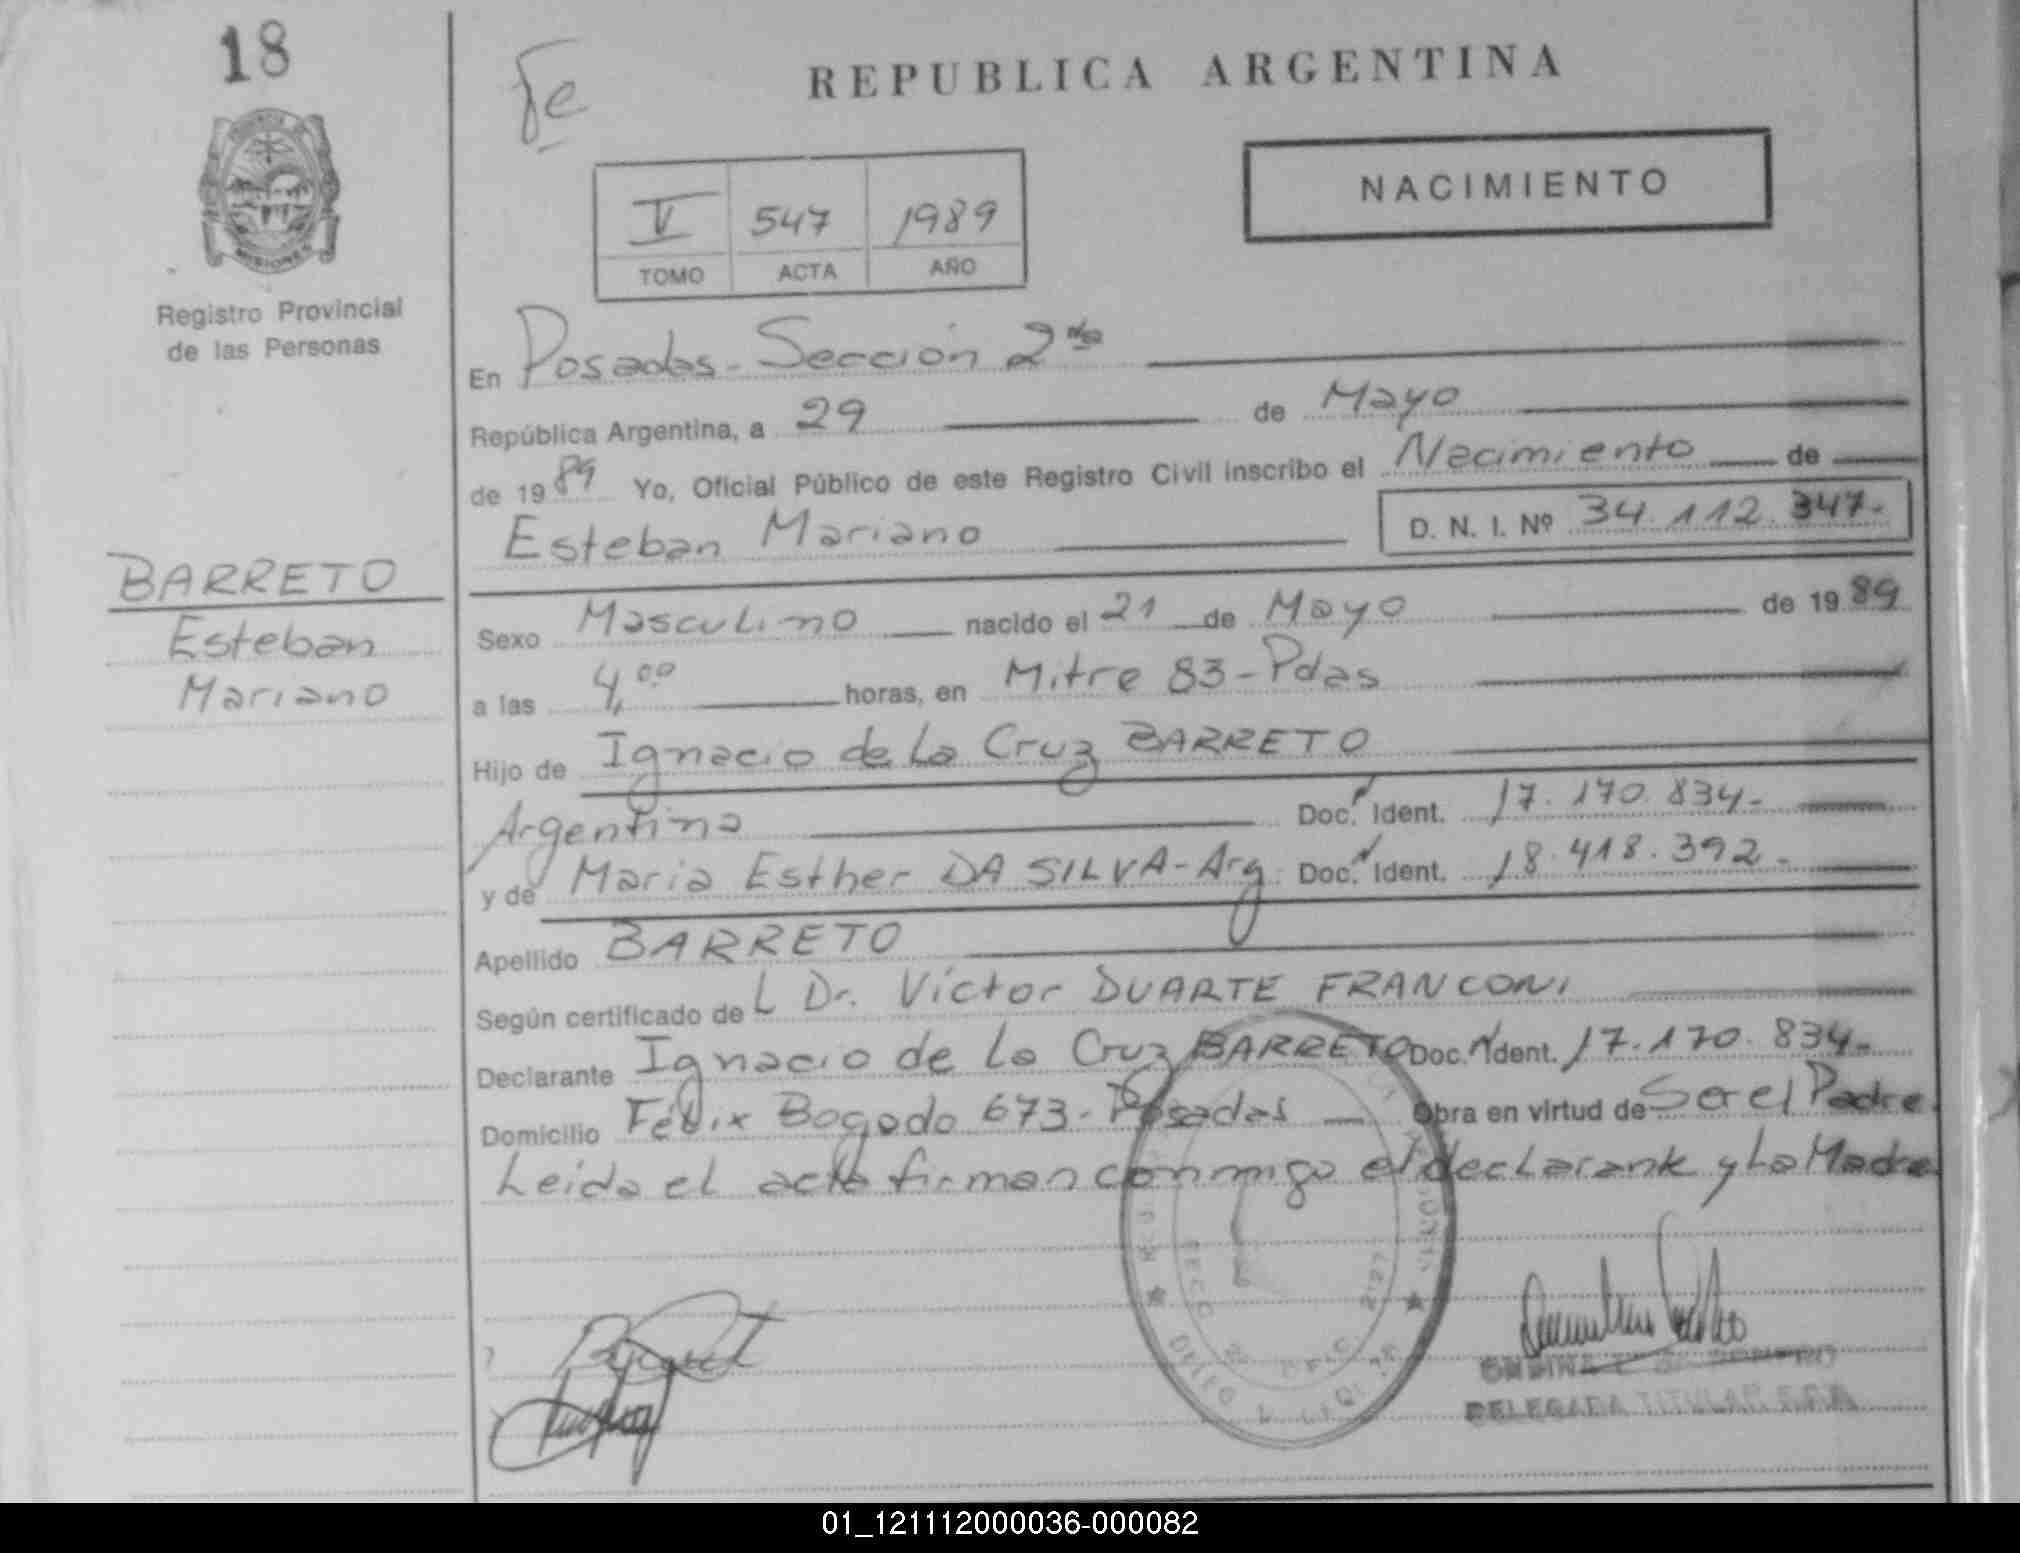 18
Fe
REPUBLICA ARGENTINA
MISIONES
Registro Provincial
de las Personas
V 547 1989
TOMO ACTA AÑO
NACIMIENTO
En Posadas - Sección 2da
República Argentina, a 29 de Mayo
de 1989 Yo, Oficial Público de este Registro Civil inscribo el Nacimiento de
Esteban Mariano D. N. I. Nº 34.112.347.-
BARRETO
Esteban
Mariano
Sexo Masculino nacido el 21 de Mayo de 1989
a las 4,00 horas, en Mitre 83 - Pdas
Hijo de Ignacio de La Cruz BARRETO
Argentina Doc. Ident. 17.170.834-
y de Maria Esther DA SILVA - Arg. Doc. Ident. 18.418.392-
Apellido BARRETO
Según certificado de L Dr. Víctor DUARTE FRANCONI
Declarante Ignacio de La Cruz BARRETO Doc. Ident. 17.170.834-
Domicilio Félix Bogado 673 - Posadas Obra en virtud de Ser el Padre.
Leida el acta firman conmigo el declarante y La Madre
DELEGADA TITULAR
01_121112000036-000082